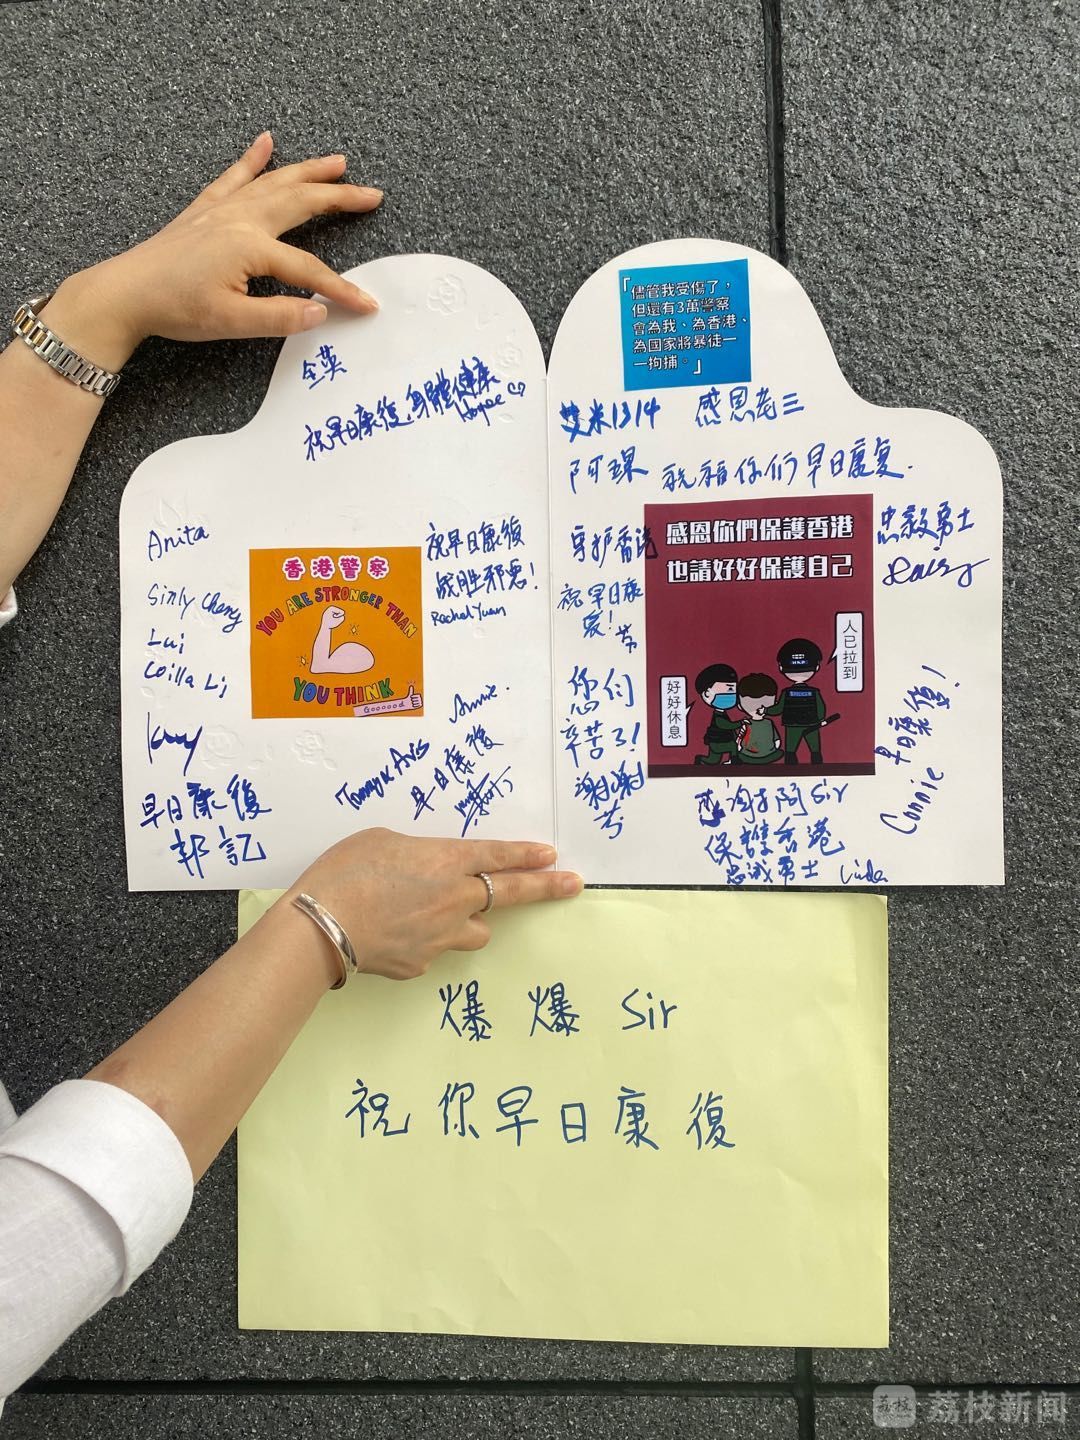 全英
祝早日康復,身體健康
Anita
Sinly Cheng
Lui
Coilla Li
香港警察
YOU ARE STRONGER THAN
YOU THINK
Goooood
祝早日康復
战胜邪惡!
Rachel Yuan
Annie.
早日康復
早日康復
邦記
「儘管我受傷了，
但還有3萬警察
會為我、為香港、
為國家將暴徒一
一拘捕。」
1314
感恩老三
祝福你们早日康复.
守护香港
祝早日康
芳
您们
辛苦了!
谢谢
芳
感恩你們保護香港
也請好好保護自己
人已拉到
好好休息
忠毅勇士
Daisy
早日康復!
Connie
阿Sir
保護香港
忠誠勇士 Linda
爆爆Sir
祝你早日康復
荔枝新闻